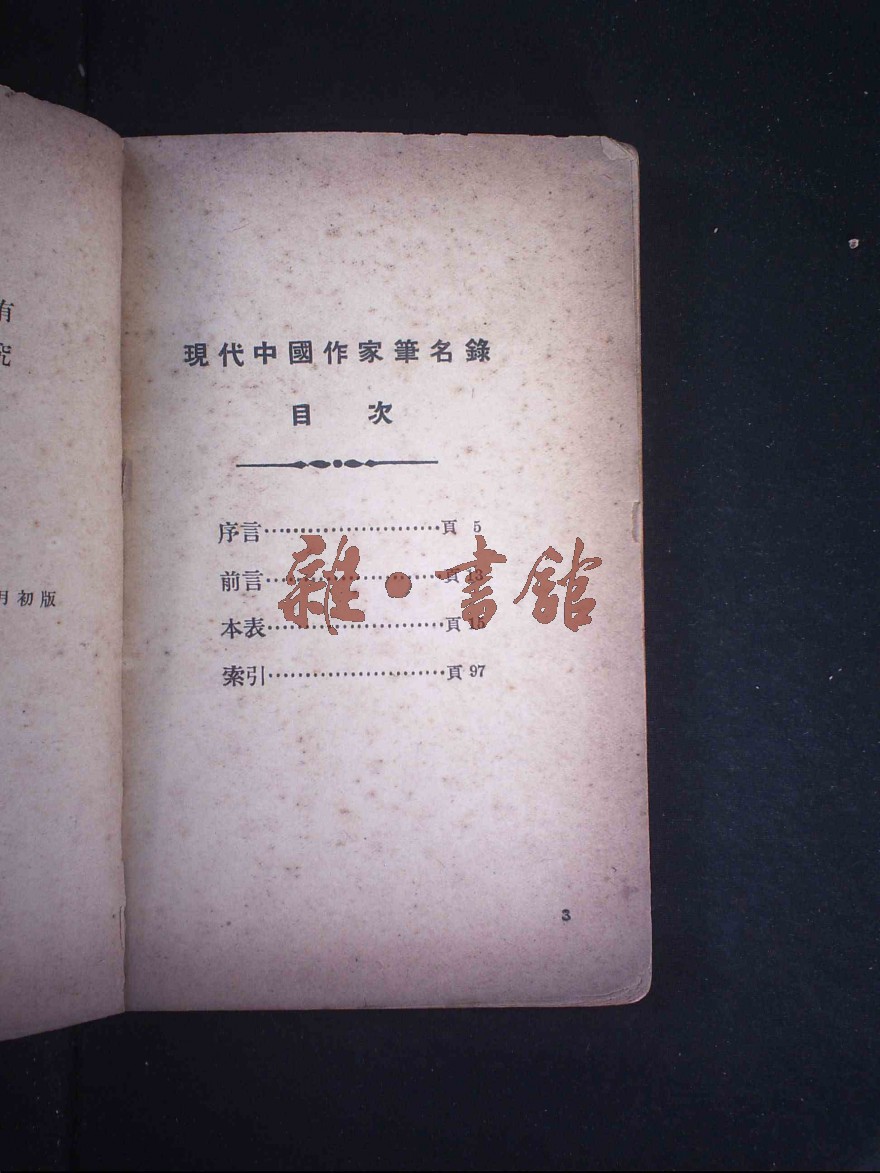 有
究
月初版
現代中國作家筆名錄
目 次
序言························頁 5
前言························頁 13
本表························頁 15
索引························頁 97
雜·書館
3